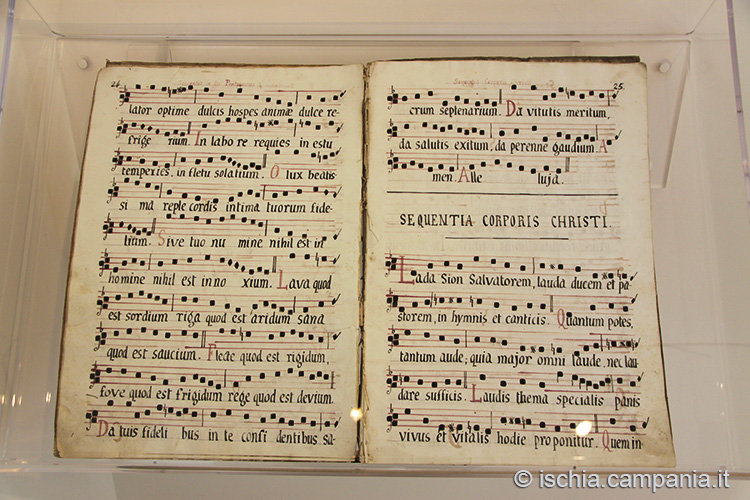 24.
lator optime dulcis hospes animæ dulce re-
frige rium. In labo re requies in estu
temperies, in fletu solatium. O lux beatis
si ma reple cordis intima tuorum fide-
lium. Sive tuo nu mine nihil est in
homine nihil est inno xium. Lava quod
est sordium riga quod est aridum sana
quod est saucium. Fleac quod est rigidum,
fove quod est frigidum rege quod est devium.
Da tuis fideli bus in te confi dentibus sa-
25.
crum septenarium. Da vitutis meritum,
da salutis exitum, da perenne gaudium. A
men. Alle luja.
SEQUENTIA CORPORIS CHRISTI.
Lada Sion Salvatorem, lauda ducem et pa-
storem, in hymnis et canticis. Quantum potes,
tantum aude; quia major omni laude, nec lau-
dare sufficis. Laudis thema specialis panis
vivus et vitalis hodie proponitur. Quem in
© ischia.campania.it